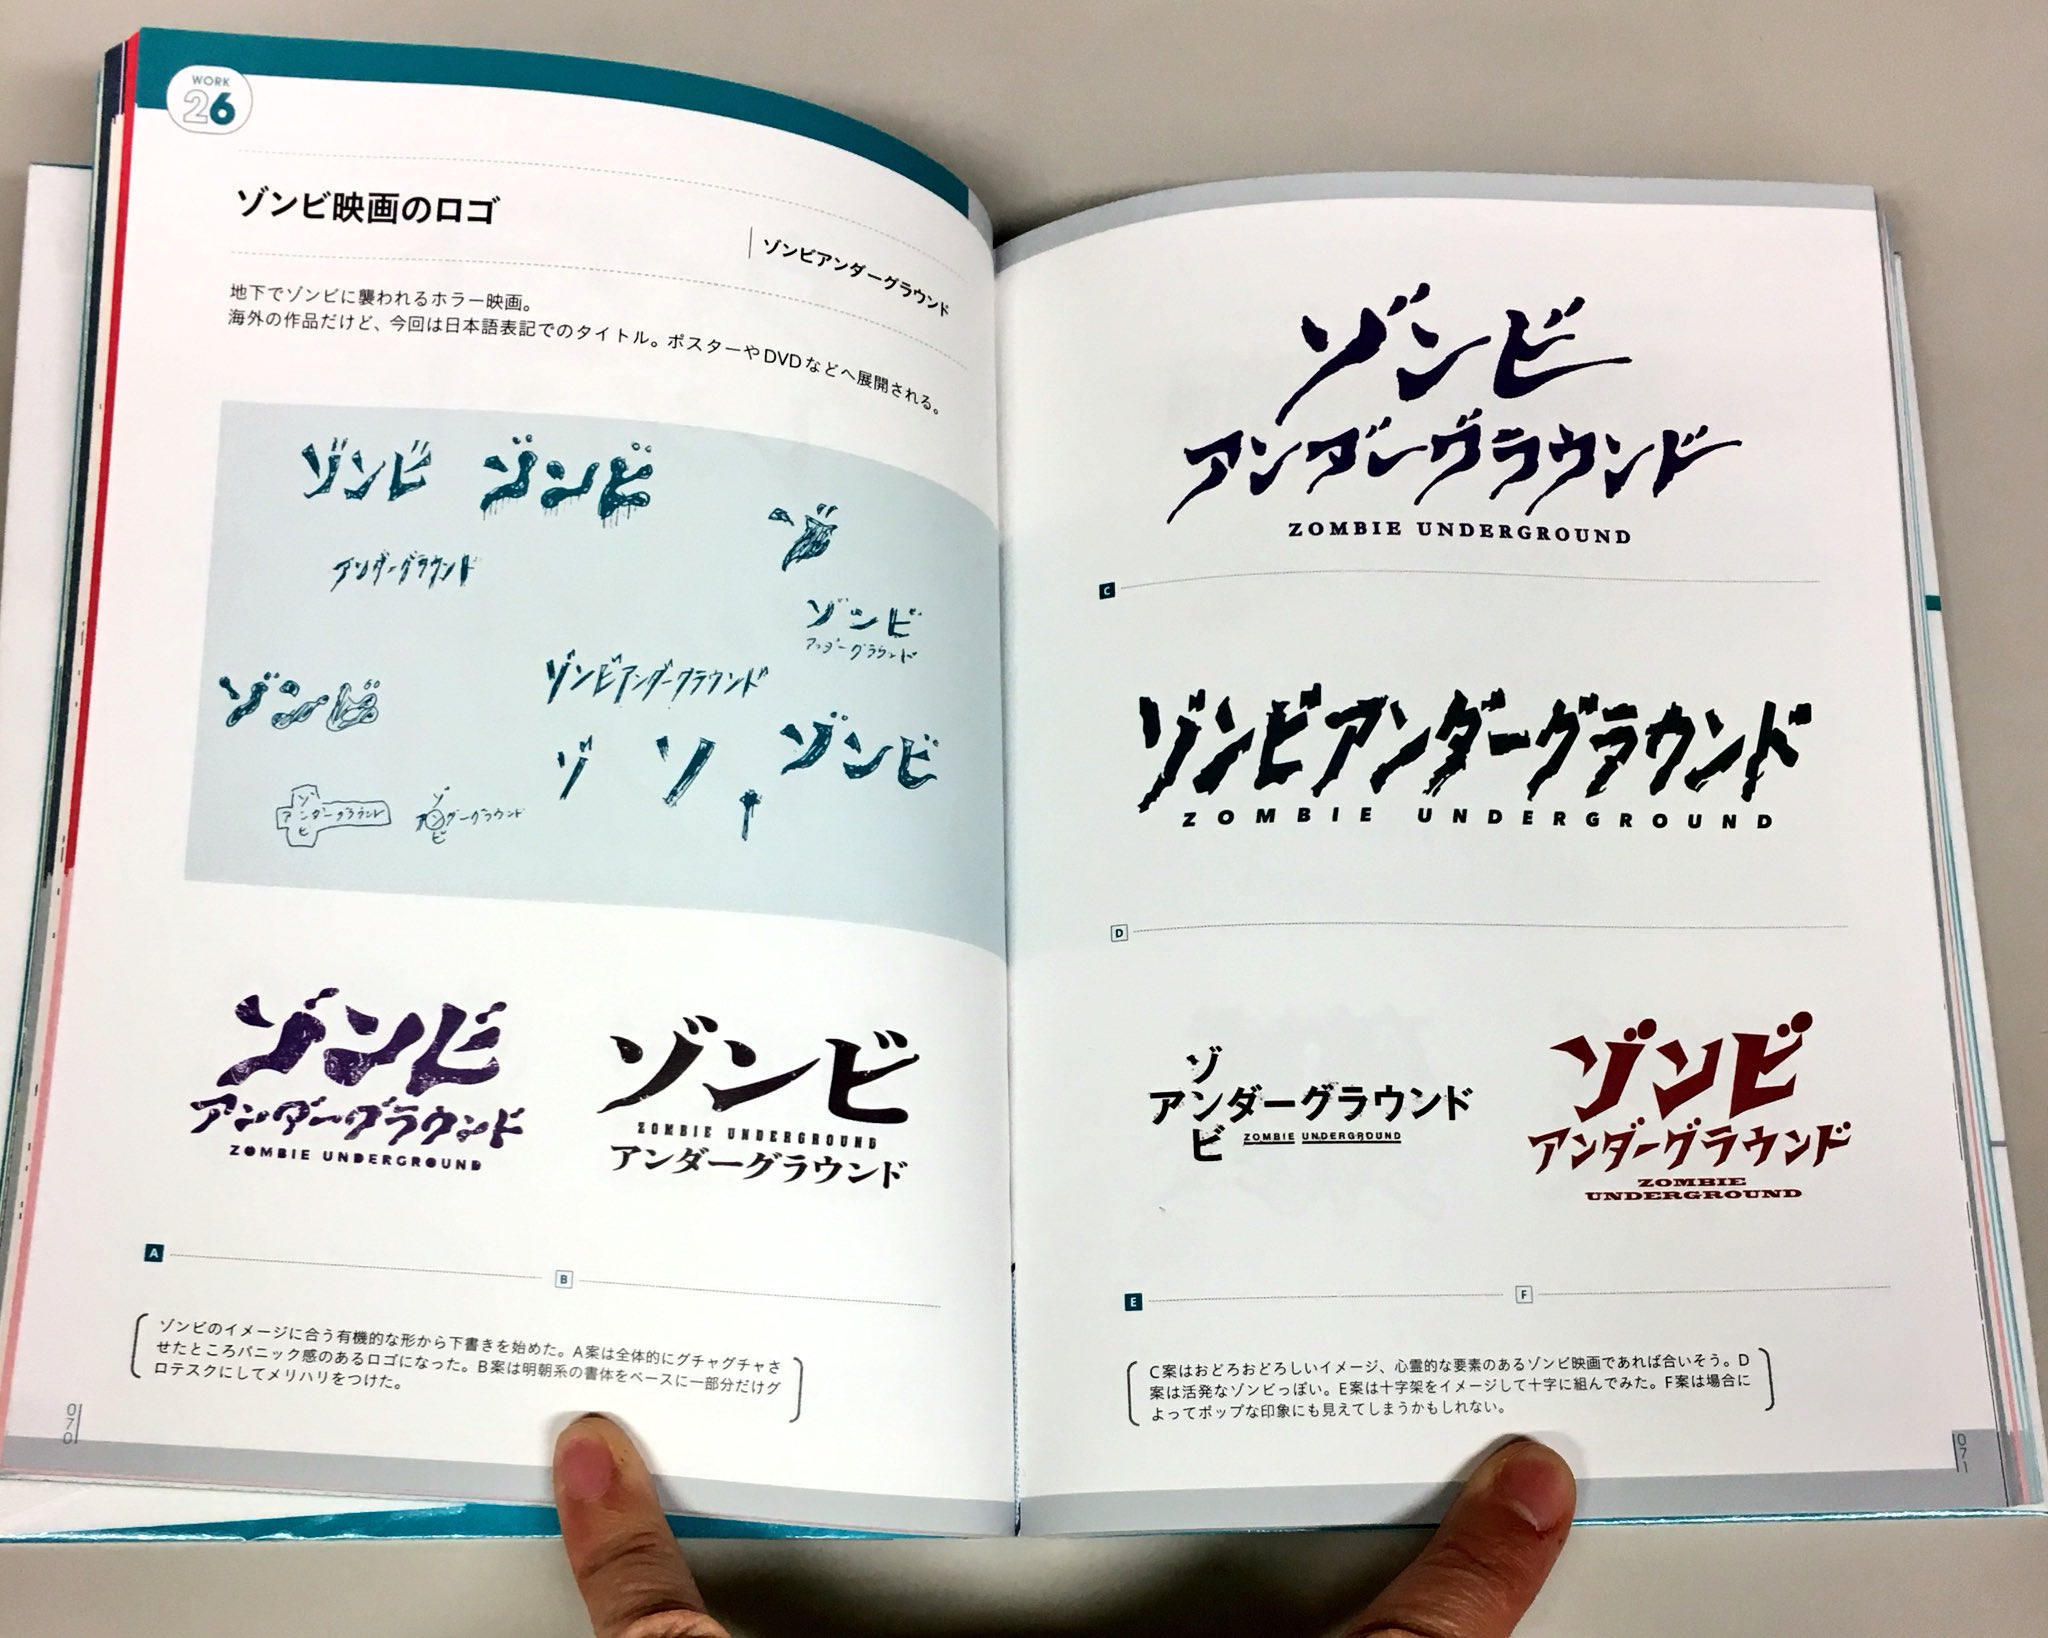 WORK
26
ゾンビ映画のロゴ
ゾンビアンダーグラウンド
地下でゾンビに襲われるホラー映画。
海外の作品だけど、今回は日本語表記でのタイトル。ポスターやDVDなどへ展開される。
ゾンビ
ゾンビ
ゾ
アンダーグラウンド
ゾンビ
アンダーグラウンド
ゾンビ
ゾンビアンダーグラウンド
ゾ
ソ
ゾンビ
ゾ
アンダーグラウンド
ビ
ゾ
アンダーグラウンド
ビ
ゾンビ
アンダーグラウンド
ZOMBIE UNDERGROUND
ゾンビ
ZOMBIE UNDERGROUND
アンダーグラウンド
A
B
ゾンビのイメージに合う有機的な形から下書きを始めた。A案は全体的にグチャグチャさ
せたところパニック感のあるロゴになった。B案は明朝系の書体をベースに一部分だけグ
ロテスクにしてメリハリをつけた。
070
ゾンビ
アンダーグラウンド
ZOMBIE UNDERGROUND
C
ゾンビアンダーグラウンド
ZOMBIE UNDERGROUND
D
ゾ
アンダーグラウンド
ビ ZOMBIE UNDERGROUND
ゾンビ
アンダーグラウンド
ZOMBIE
UNDERGROUND
E
F
C案はおどろおどろしいイメージ、心霊的な要素のあるゾンビ映画であれば合いそう。D
案は活発なゾンビっぽい。E案は十字架をイメージして十字に組んでみた。F案は場合に
よってポップな印象にも見えてしまうかもしれない。
071